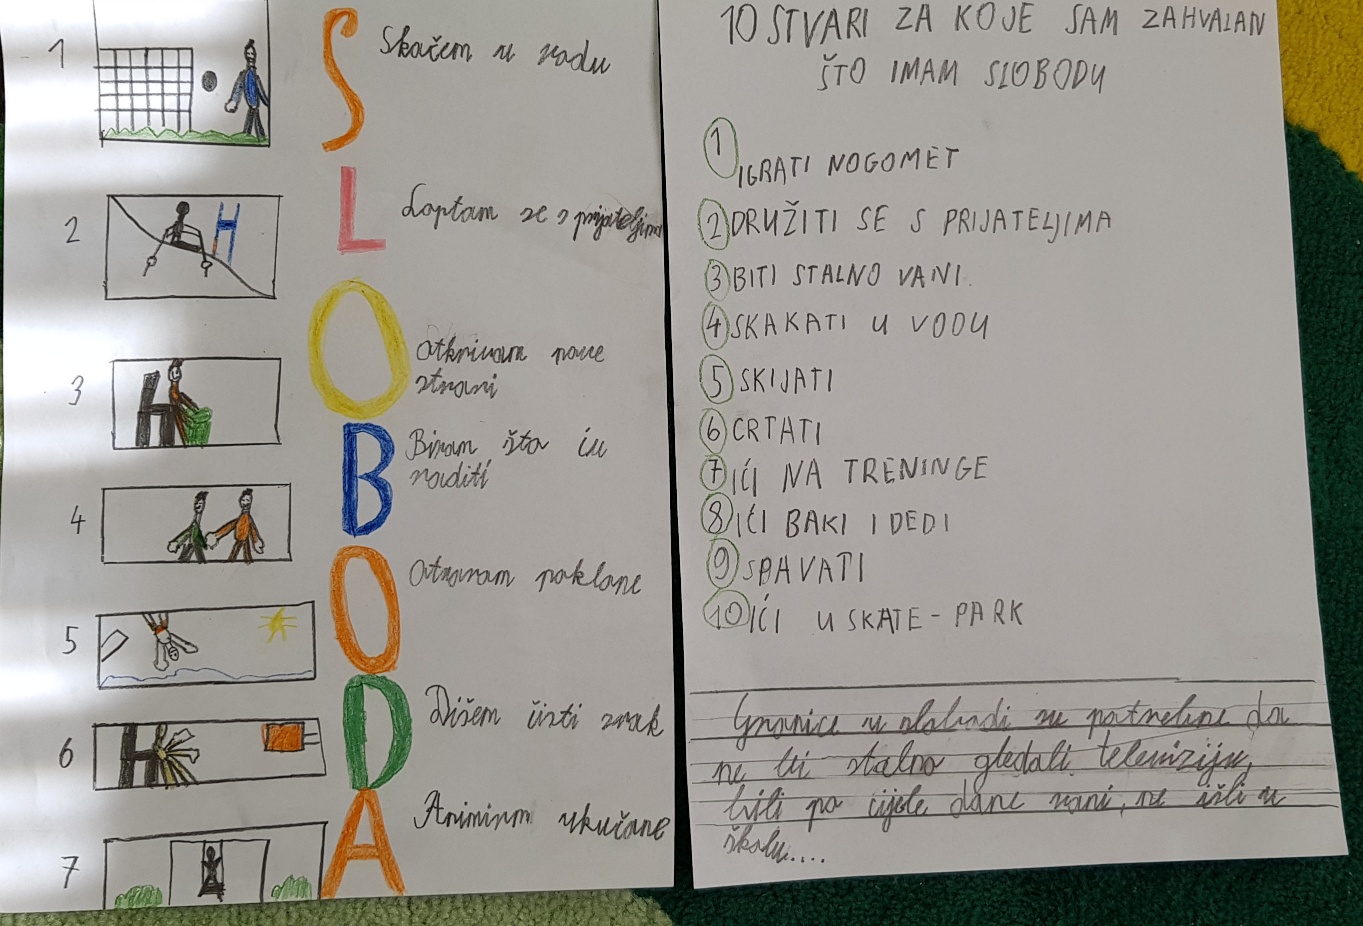 1
S
Skačem u vodu
2
L
Loptam se s prijateljima
3
O
Otkrivam nove
strani
B
Biram što ću
raditi
4
O
Otvaram poklone
5
D
Dišem čisti zrak
6
A
Animiram ukućane
7
H
10 STVARI ZA KOJE SAM ZAHVALAN
ŠTO IMAM SLOBODU
1 IGRATI NOGOMET
2 DRUŽITI SE S PRIJATELJIMA
3 BITI STALNO VANI.
4 SKAKATI U VODU
5 SKIJATI
6 CRTATI
7 IĆI NA TRENINGE
8 IĆI BAKI I DEDI
9 SPAVATI
10 IĆI U SKATE-PARK
Granice u slobodi su potrebne da
ne bi stalno gledali televiziju,
bili po cijele dane vani, ne išli u
školu....